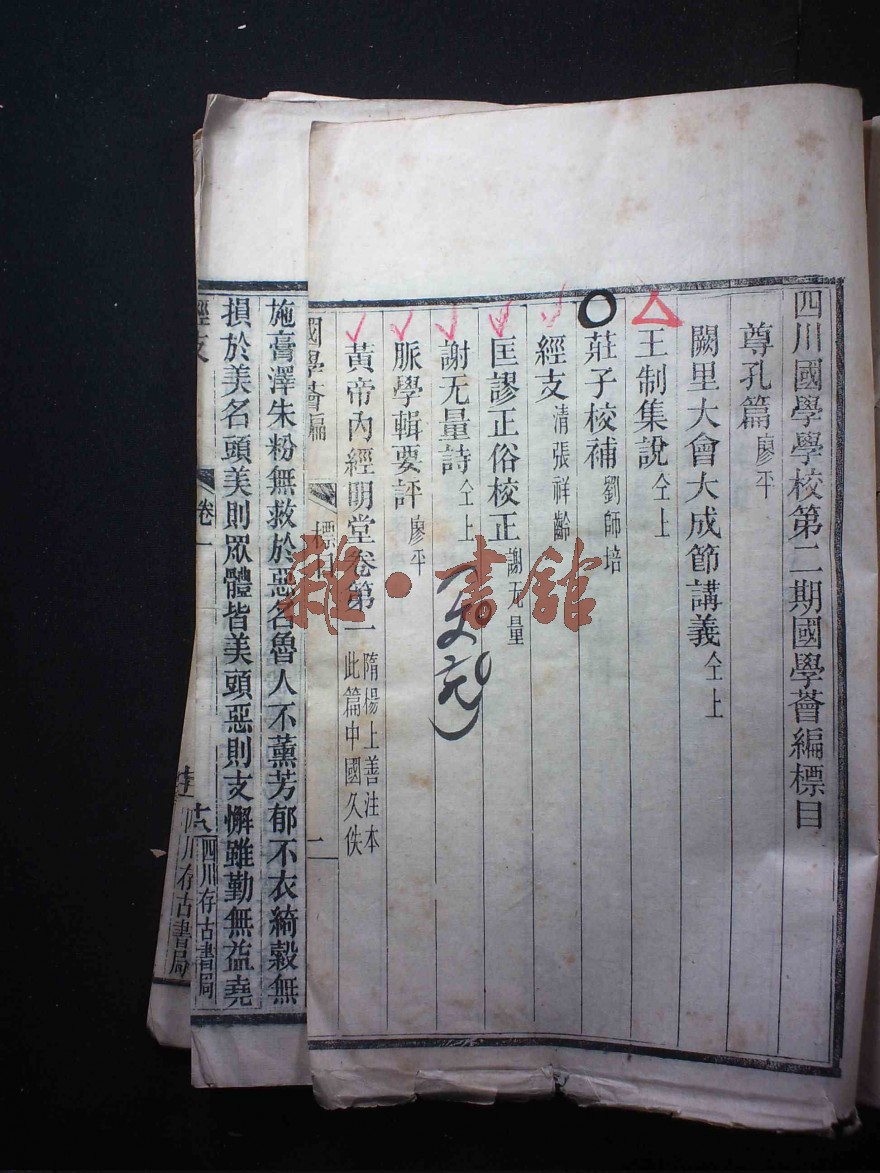 四川國學學校第二期國學薈編標目
尊孔篇 廖平
闕里大會大成節講義 仝上
王制集說 仝上
莊子校補 劉師培
經支 清張祥齡
匡謬正俗校正 謝无量
謝无量詩 仝上
脈學輯要評 廖平
黃帝內經明堂卷第一 隋楊上善注本
此篇中國久佚
國學薈編 標目 二
雜·書館
施膏澤朱粉無救於惡名魯人不薰芳郁不衣綺縠無
損於美名頭美則眾體皆美頭惡則支懈雖勤無益堯
經支 卷一
四川存古書局
川存古書局